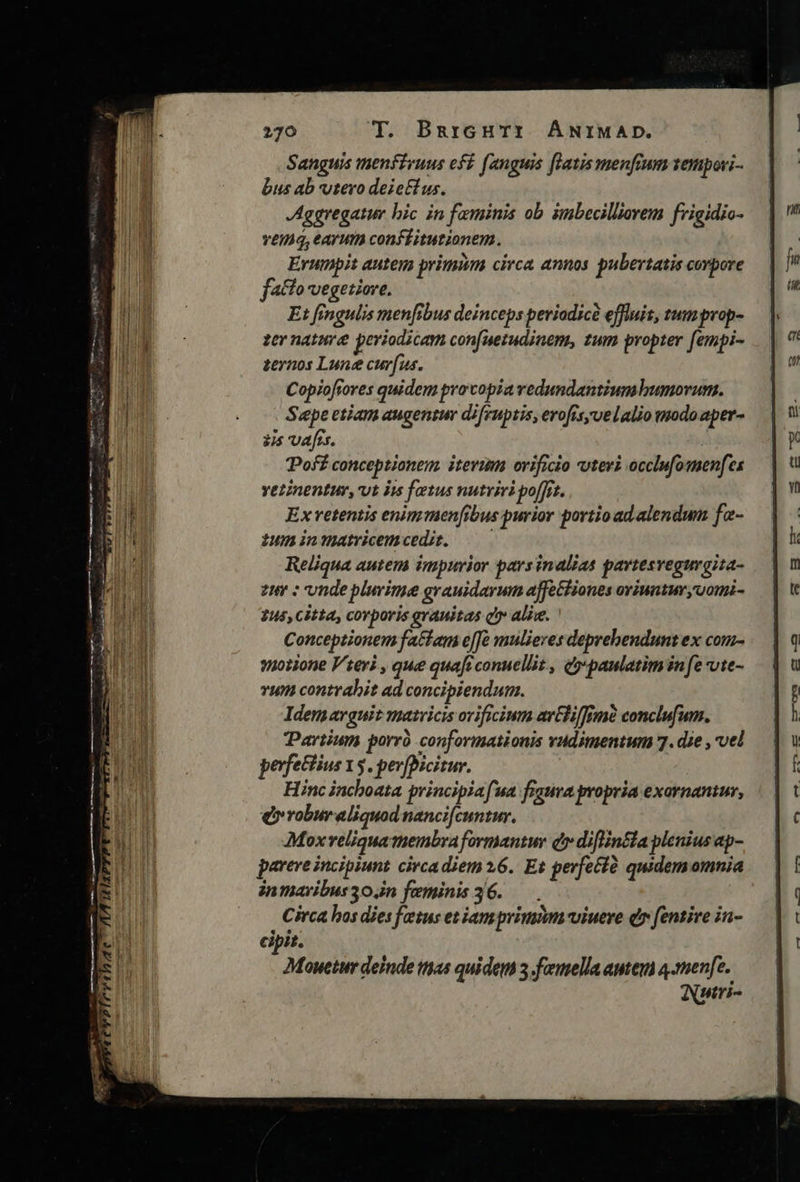 270 T. BRIGHTI ANIMAD.
Sanguis menstruus est sanguis statis mensium tempori-
bus ab vtero deiectus.
Aggregatur hic in fœminis ob imbecilliorem frigidio-
remq, earum constitutionem.
Erumpit autem primùm circa annos pubertatis corpore
facto vegetiore.
Et singulis mensibus deinceps periodicè effluit, tum prop-
ter naturæ periodicam consuetudinem, tum propter sempi-
ternos Lunæ cursus.
Copiosiores quidem pro copia redundantium humorum.
Sæpe etiam augentur disruptis, erosis, vel alio modo aper-
tis vasis.
Post conceptionem iterùm orificio vteri occluso menses
retinentur, vt iis fœtus nutriri possit.
Ex retentis enim mensibus purior portio ad alendum fœ-
tum in matricem cedit.
Reliqua autem impurior pars in alias partes regurgita-
tur : vnde plurimæ grauidarum affectiones oriuntur, vomi-
tus, citta, corporis grauitas & aliæ.
Conceptionem factam esse mulieres deprehendunt ex com-
motione Vteri , quæ quasi conuellit , & paulatim in se vte-
rum contrahit ad concipiendum.
Idem arguit matricis orificium arctissimè conclusum.
Partium porrò conformationis rudimentum 7. die , vel
perfectius 15. perspicitur.
Hinc inchoata principia sua figura propria exornantur,
& robur aliquod nanciscuntur.
Mox reliqua membra formantur & distincta plenius ap-
parere incipiunt circa diem 26. Et perfectè quidem omnia
in maribus 30. in fœminis 36.
Circa hos dies fœtus et iam primùm viuere & sentire in-
cipit.
Mouetur deinde mas quidem 3. fœmella autem 4. mense.
Nutri-